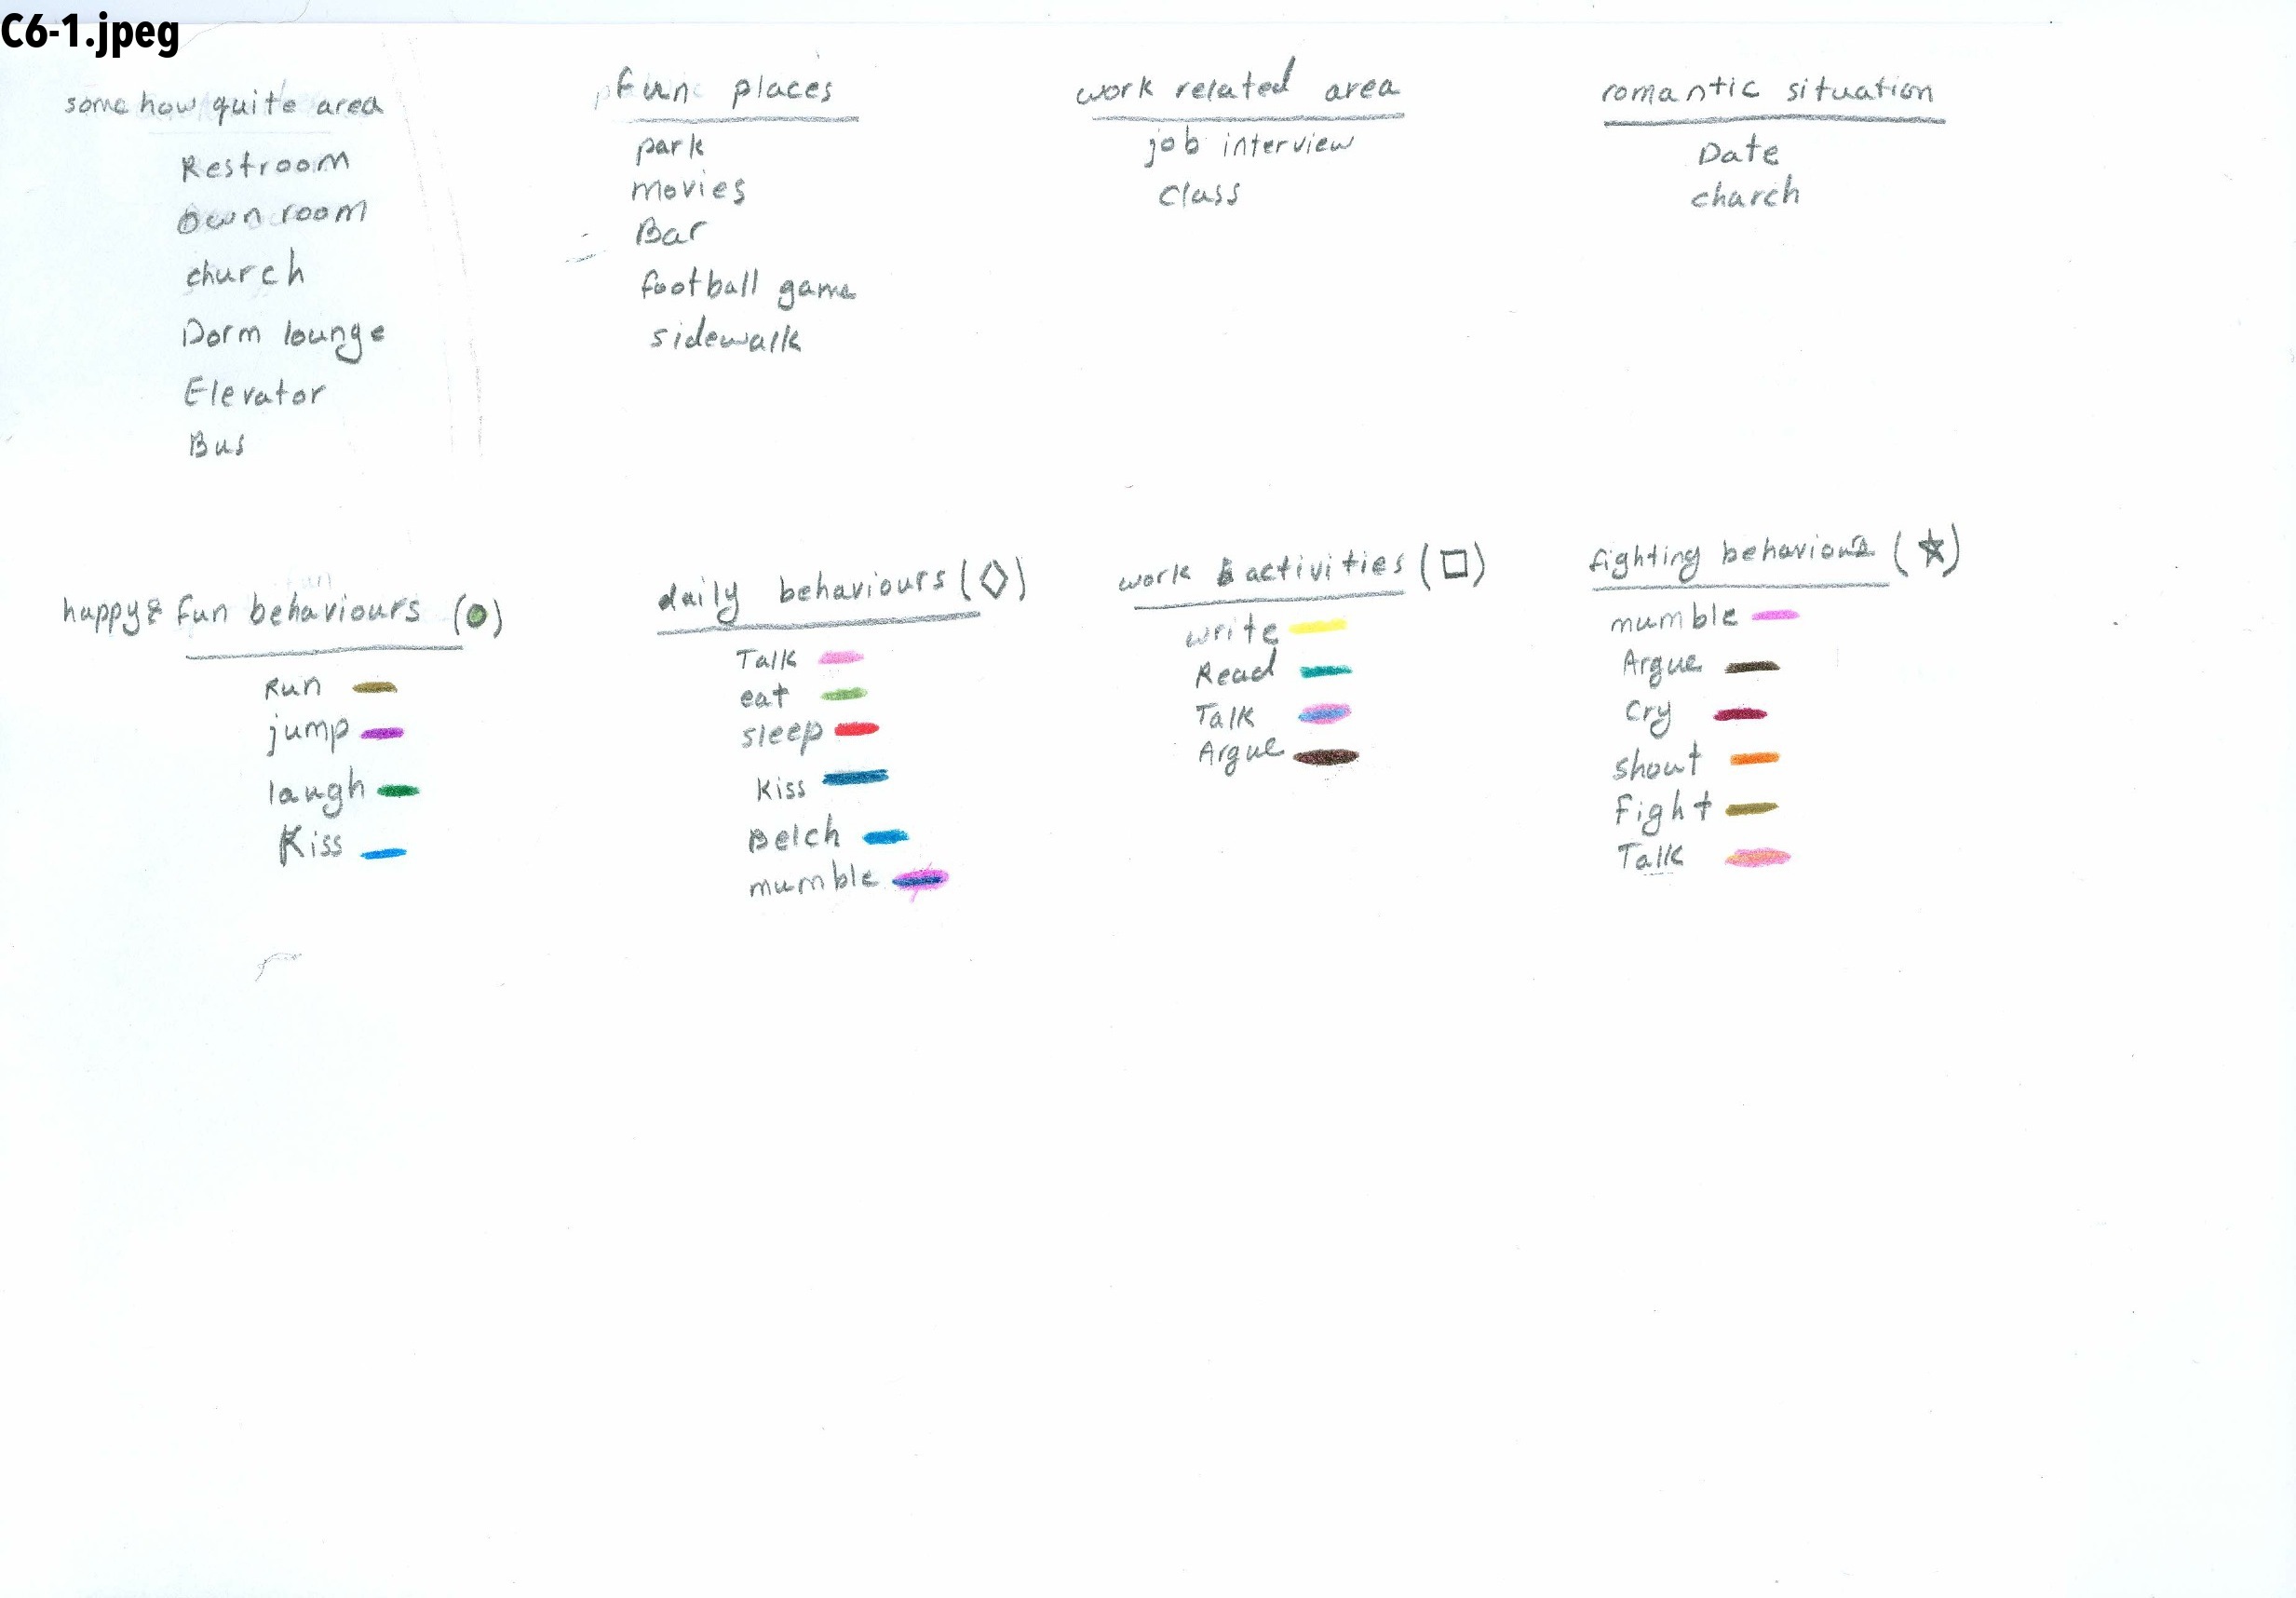 C6-1.jpeg
some how quite area
Restroom
own room
church
Dorm lounge
Elevator
Bus
fun places
park
movies
Bar
football game
sidewalk
work related area
job interview
class
romantic situation
Date
charch
happy & fun behaviours (●)
Run
jump
laugh
Kiss
daily behaviours (◇)
Talk
eat
sleep
Kiss
Belch
mumble
work & activities (□)
write
Read
Talk
Argue
fighting behaviours (☆)
mumble
Argue
Cry
shout
Fight
Talk